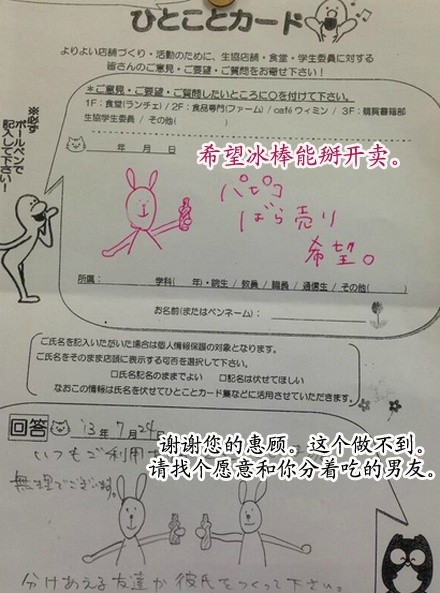 ひとことカード
よりよい店舗づくり・活動のために、生協店舗・食堂・学生委員に対する
皆さんのご意見・ご要望・ご質問をお寄せ下さい!
※必ず
ボールペンで
記入して下さい!
*ご意見・ご要望・ご質問したいところに○を付けて下さい。
1F:食堂(ランチェ)/2F:食品専門(ファーム)/café ウィミン/3F:購買書籍部
生協学生委員/その他( )
年 月 日
希望冰棒能掰开卖。
パピコ
ばら売り
希望。
所属: 学科( 年)・院生/教員/職員/通信生/その他( )
お名前(またはペンネーム):
ご氏名を記入いただいた場合は個人情報保護の対象となります。
ご氏名をそのまま店頭に表示する可否を選択して下さい。
□氏名記名のままでよい □記名は伏せてほしい
なおこの情報は氏名を伏せてひとことカード集などに活用させていただきます。
回答 '13年7月24
谢谢您的惠顾。这个做不到。
请找个愿意和你分着吃的男友。
いつもご利用
無理でございます。
分けあえる友達か彼氏をつくって下さい。